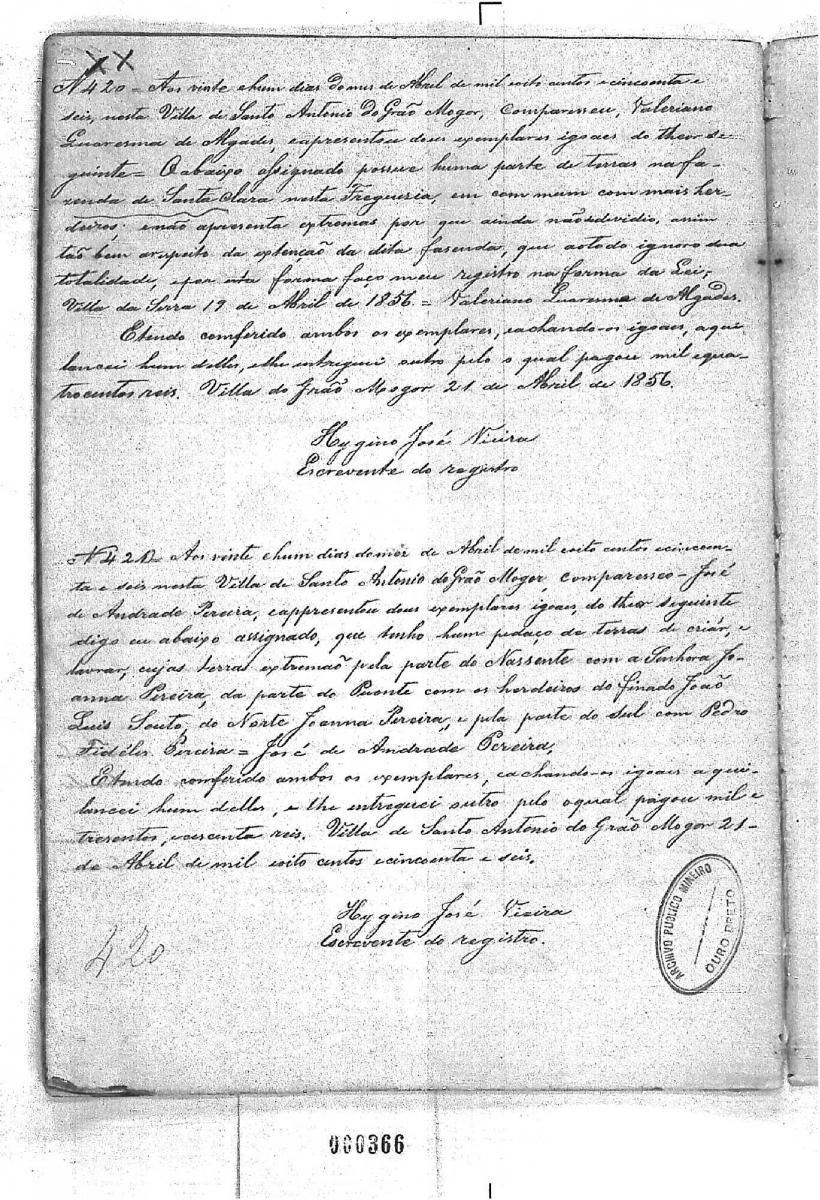 XX
N 420 = Aos vinte ehum dias do mes de Abril de mil oito centos ecincoenta e
seis, nesta Villa de Santo Antonio do Grão Mogor, Compareceu, Valeriano
Quaresma de Algades, eapresentou dous exemplares igoaes do theor se-
guinte = O abaixo assignado possue huma parte de terras na fa-
zenda de Santa Clara nesta Freguezia, em com mum com mais her-
deiros: enão apresenta extremas por que ainda nãosedevidio, assim
tão bem arespeito da extenção da dita fasenda, que aotodo ignoro sua
totalidade, epor esta forma faço meu registro na forma da Lei,
Villa da Serra 19 de Abril de 1856 = Valeriano Quaresma de Algades.
Etendo comferido ambos os exemplares, eachando-os igoaes, aqui
lancei hum delles, elhe entreguei outro pelo o qual pagou mil equa-
trocentos reis. Villa do Grão Mogor 21 de Abril de 1856.
Hygino José Vieira
Escrevente do registro
N 421) = Aos vinte ehum dias domez de Abril demil oito centos ecincoen-
ta e seis nesta Villa de Santo Antonio do Grão Mogor, comparesseo - José
de Andrade Pereira, eappresentou dous exemplares igoaes, do theor seguinte
digo eu abaixo assignado, que tenho hum pedaço de terras de criár, e
lavrar, cujas terras extremão pela parte do Nassente com a Senhora Jo-
anna Pereira, da parte do Puente com os herdeiros do finado João
Luis Souto, do Norte Joanna Pereira, e pela parte do sul com Pedro
Fidélis Pereira = José de Andrade Pereira,
Etendo comferido ambos os exemplares, eachando-os igoaes aqui-
lancei hum delles, e lhe entreguei outro pelo oqual pagou mil e
tresentos, ecescenta reis. Villa de Santo Antonio do Grão Mogor 21-
de Abril de mil oito centos ecincoenta e seis.
Hygino José Vieira
Escrevente do registro.
420
ARCHIVO PUBLICO MINEIRO
OURO PRETO
000366